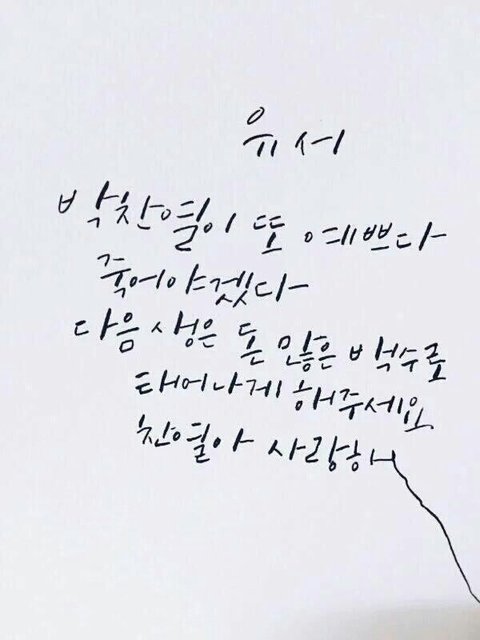 유서
박찬열이 또 예쁘다
죽어야겠다
다음 생은 돈 많은 백수로
태어나게 해주세요
찬열아 사랑해